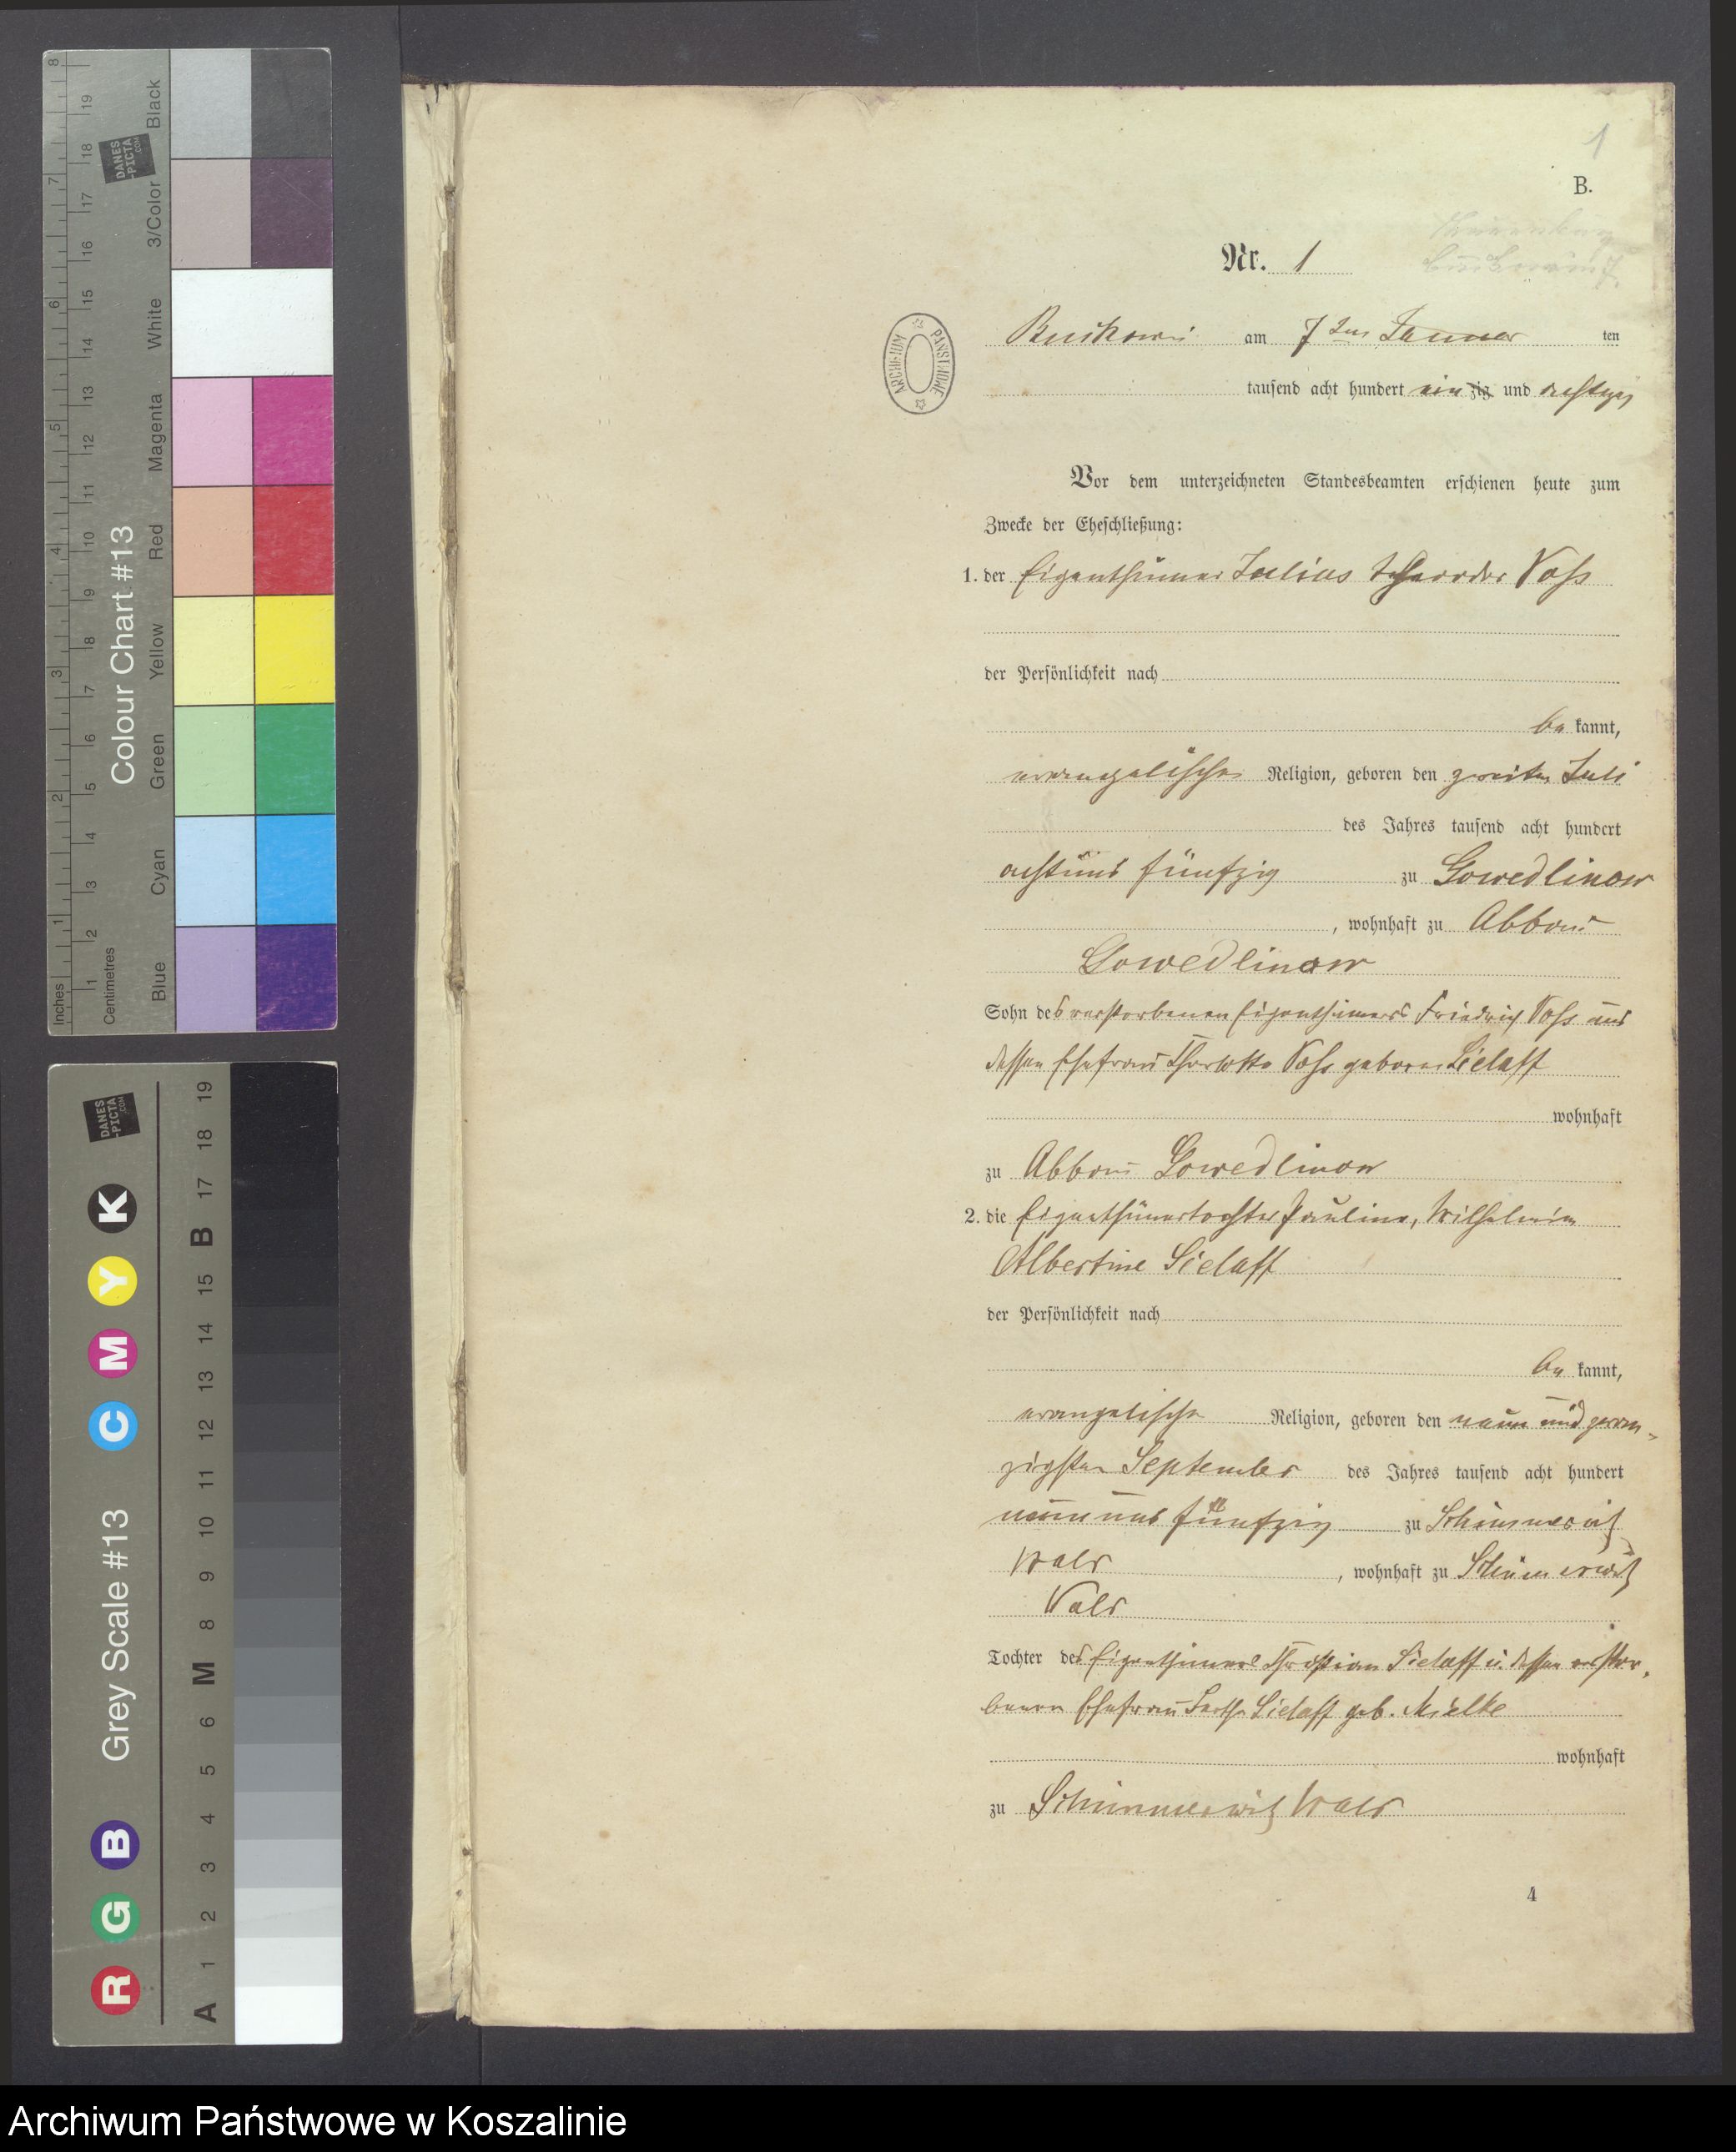 1
B.
Nr. 1
am 7ten Januar ten
tausend acht hundert ein zig und achtzig
ARCHIWUM PAŃSTWOWE
Vor dem unterzeichneten Standesbeamten erschienen heute zum
Zwecke der Eheschließung:
1. der Eigenthümer Julius Voß
der Persönlichkeit nach
be kannt,
evangelischer Religion, geboren den zweiten Juli
des Jahres tausend acht hundert
acht und fünfzig zu Gowedlinow
, wohnhaft zu Abbau
Gowedlinow
Sohn des verstorbenen Eigenthümers Friedrich Voß und
dessen Ehefrau Charlotte Voß geborene Sielaff
wohnhaft
zu Abbau Gowedlinow
2. die Eigenthümertochter Pauline, Wilhelmine
Albertine Sielaff
der Persönlichkeit nach
be kannt,
evangelische Religion, geboren den neun und zwan-
zigsten September des Jahres tausend acht hundert
neun und fünfzig zu Schimmerwitz
Wald , wohnhaft zu Schimmerwitz
Wald
Tochter des Eigenthümers Christian Sielaff u. dessen verstor-
benen Ehefrau Sielaff geb. Mielke
wohnhaft
zu Schimmerwitz Wald
4
Inches
1 2 3 4 5 6 7 8
Centimetres
1 2 3 4 5 6 7 8 9 10 11 12 13 14 15 16 17 18 19
Colour Chart #13
Blue Cyan Green Yellow Red Magenta White 3/Color Black
DANES
-PICTA
.COM
R G B Grey Scale #13 C M Y K
DANES
-PICTA
.COM
A 1 2 3 4 5 6 M 8 9 10 11 12 13 14 15 B 17 18 19
Archiwum Państwowe w Koszalinie